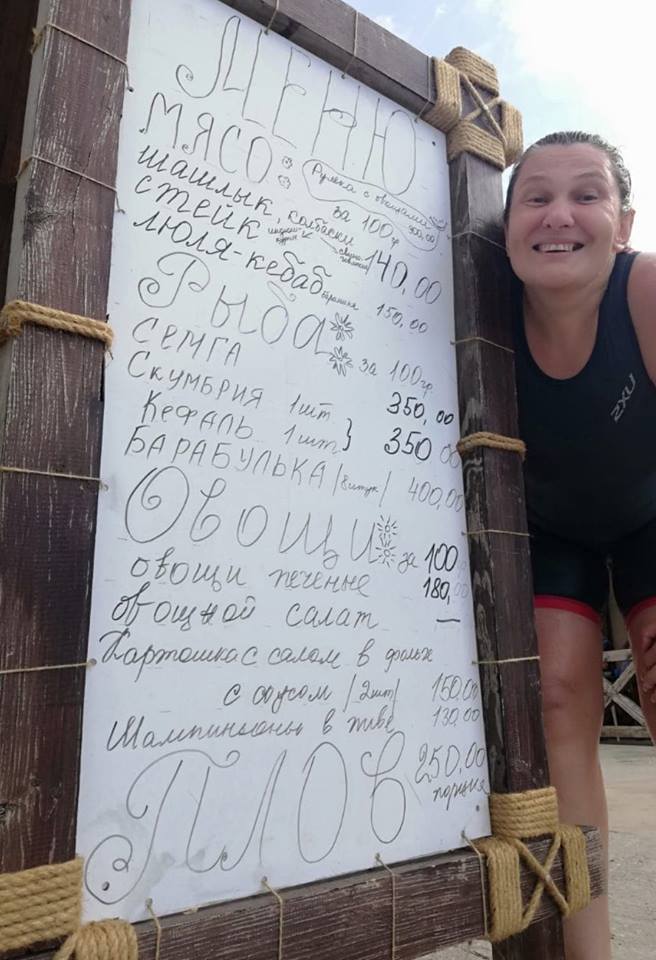 МЕНЮ
МЯСО: Рулька с овощами 300,00
за 100г
шашлык, колбаски
СТЕЙК 140,00
люля-кебаб баранина 150,00
Рыба за 100гр
СЕМГА 350,00
Скумбрия 1шт
Кефаль 1шт. } 350,00
БАРАБУЛЬКА /8штук/ 400,00
Овощи за 100
овощи печеные 180,
овощной салат —
Картошка с салом в фольге
с соусом /2шт/ 150,00
Шампиньоны 130,00
ПЛОВ 250,00
порция
2XU